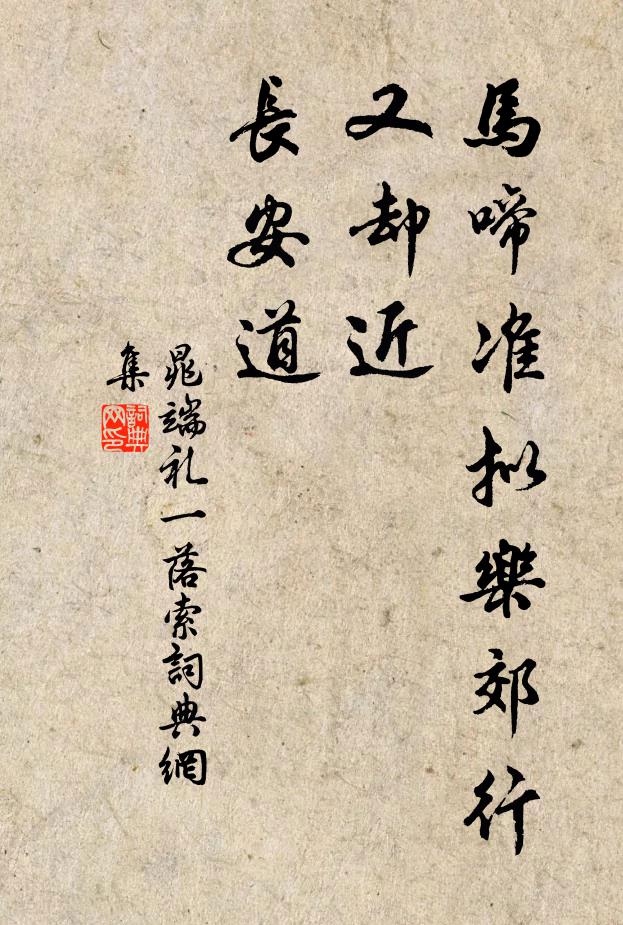 馬啼准拟樂郊行
又却近
長安道
晁端礼一落索詞典網
集
詞典网印